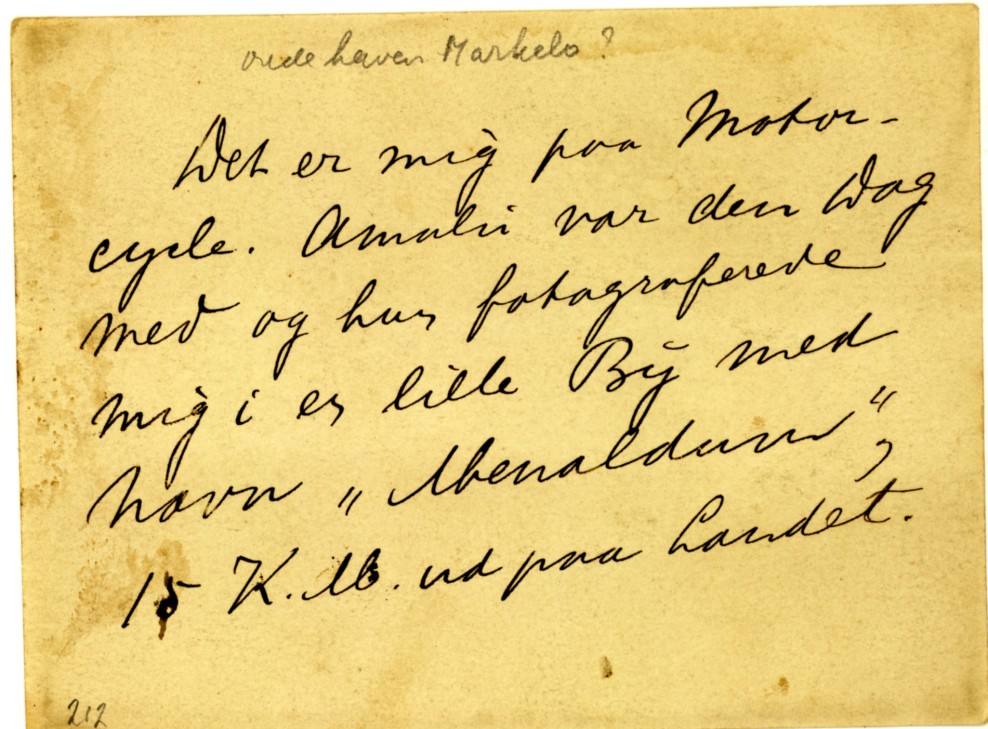 oude haven Markelo?
Det er mig paa Motor-
cycle. Amalii var den Dag
med og hun fotograferede
mig i en lille By med
Navn „Menaldum“,
15 K.M. ud paa Landet.
212